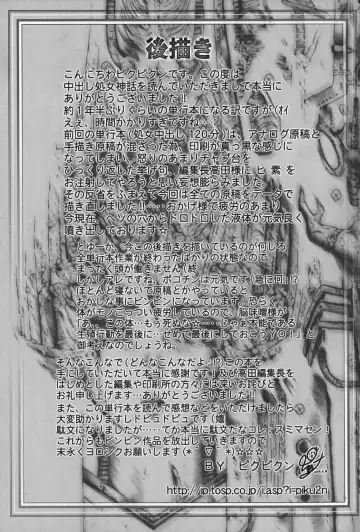 後描き
こんにちわピクピクンです。この度は
中出し処女神話を読んでいただきまして本当に
ありがとうございました!!
約1年半ぶりくらいの単行本になる訳ですが(オイ
えぇ、時間かかりすぎですね・・・
前回の単行本(処女中出し120分)は、アナログ原稿と
手描き原稿が混ざった為、印刷が真っ黒な感じに
なってしまい、怒りのあまりチャブ台を
ひっくり返した挙げ句、編集長高田様に ヒ 素 を
お注射してやろうと思い妄想膨らみました。
その反省をふまえて今回は全ての原稿をデータで
描き直しました!!・・・おかげ様で疲労のあまり
今現在、ケツの穴からドロドロした液体が元気良く
噴き出しております☆
とゆーか、今この後描きを描いているのが何しろ
全単行本作業が終わったばかりの状態なので
まったく頭が働きません(終
しかしアレですね、ポコチンは元気です(急に何!?
ほとんど寝ないで原稿とかやってると
おかしな事にビンビンになってきます。恐らく
体がモノごっつい疲労しているので、脳味噌様が
「あ、この体…もう死ぬな☆・・・じゃあ本能である
生殖行動を最後に…せめて最後にしておこうYO!」と
御考えなのでしょうね。
そんなこんなで(どんなこんなだよ…!)この本を
手にしていただいて本当に感謝です!及び高田編集長を
はじめとした編集や印刷所の方々には深いお詫びと
お礼申し上げます…ありがとうございました!!
また、この単行本を読んで感想などをいただけましたら
大変助かりますしドピュドピュです(嬉
駄文になりましたが・・・・てか本当に駄文だなコレ・・スミマセン!
これからもビンビン作品を放出していきますので
末永くヨロシクお願いします(*゜▽゜*)☆☆☆
BY ピクピクン
http://ip.tosp.co.jp/i.asp?i=piku2n